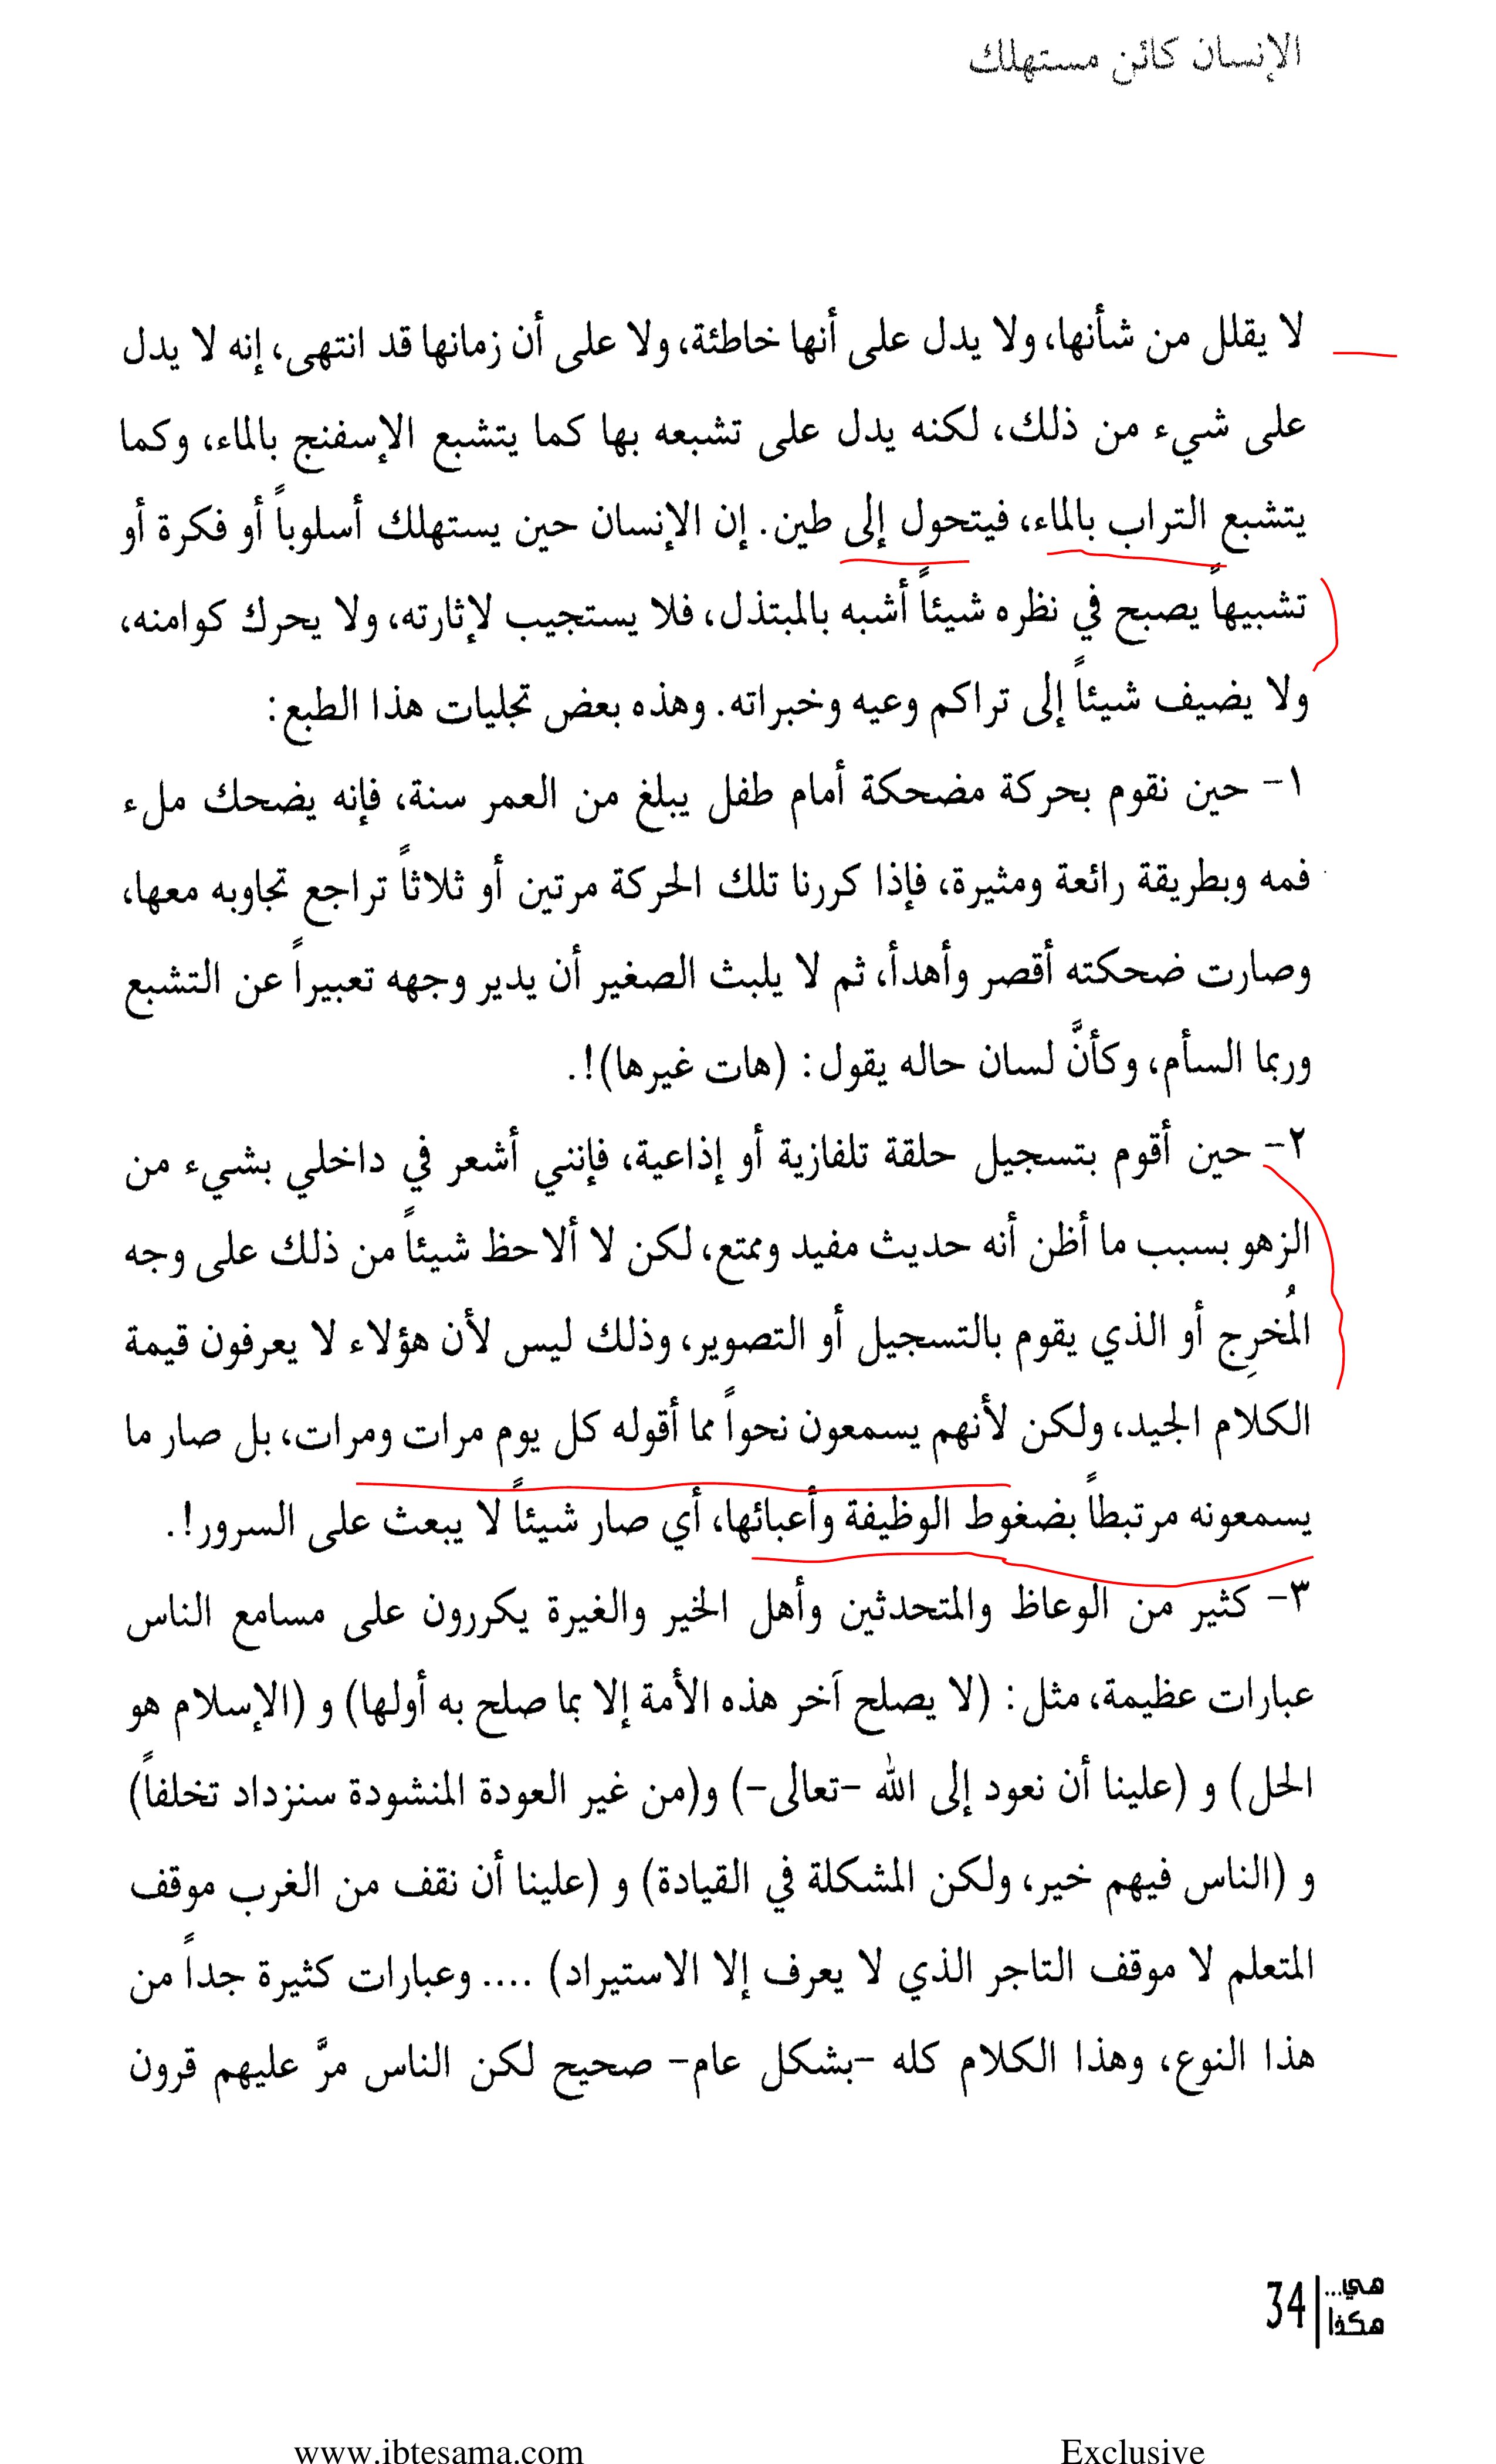 الإنسان كائن مستهلك
لا يقلل من شأنها، ولا يدل على أنها خاطئة، ولا على أن زمانها قد انتهى، إنه لا يدل
على شيء من ذلك، لكنه يدل على تشبعه بها كما يتشبع الإسفنج بالماء، وكما
يتشبع التراب بالماء، فيتحول إلى طين. إن الإنسان حين يستهلك أسلوباً أو فكرة أو
تشبيهاً يصبح في نظره شيئاً أشبه بالمبتذل، فلا يستجيب لإثارته، ولا يحرك كوامنه،
ولا يضيف شيئاً إلى تراكم وعيه وخبراته. وهذه بعض تجليات هذا الطبع:
١- حين نقوم بحركة مضحكة أمام طفل يبلغ من العمر سنة، فإنه يضحك ملء
فمه وبطريقة رائعة ومثيرة، فإذا كررنا تلك الحركة مرتين أو ثلاثاً تراجع تجاوبه معها،
وصارت ضحكته أقصر وأهدأ، ثم لا يلبث الصغير أن يدير وجهه تعبيراً عن التشبع
وربما السأم، وكأنَّ لسان حاله يقول: (هات غيرها)!.
٢- حين أقوم بتسجيل حلقة تلفازية أو إذاعية، فإنني أشعر في داخلي بشيء من
الزهو بسبب ما أظن أنه حديث مفيد وممتع، لكن لا ألاحظ شيئاً من ذلك على وجه
المُخرِج أو الذي يقوم بالتسجيل أو التصوير، وذلك ليس لأن هؤلاء لا يعرفون قيمة
الكلام الجيد، ولكن لأنهم يسمعون نحواً مما أقوله كل يوم مرات ومرات، بل صار ما
يسمعونه مرتبطاً بضغوط الوظيفة وأعبائها، أي صار شيئاً لا يبعث على السرور!.
٣- كثير من الوعاظ والمتحدثين وأهل الخير والغيرة يكررون على مسامع الناس
عبارات عظيمة، مثل: (لا يصلح آخر هذه الأمة إلا بما صلح به أولها) و (الإسلام هو
الحل) و (علينا أن نعود إلى الله -تعالى-) و(من غير العودة المنشودة سنزداد تخلفاً)
و (الناس فيهم خير، ولكن المشكلة في القيادة) و (علينا أن نقف من الغرب موقف
المتعلم لا موقف التاجر الذي لا يعرف إلا الاستيراد) .... وعبارات كثيرة جداً من
هذا النوع، وهذا الكلام كله -بشكل عام- صحيح لكن الناس مرَّ عليهم قرون
هي...
هكذا
34
www.ibtesama.com
Exclusive